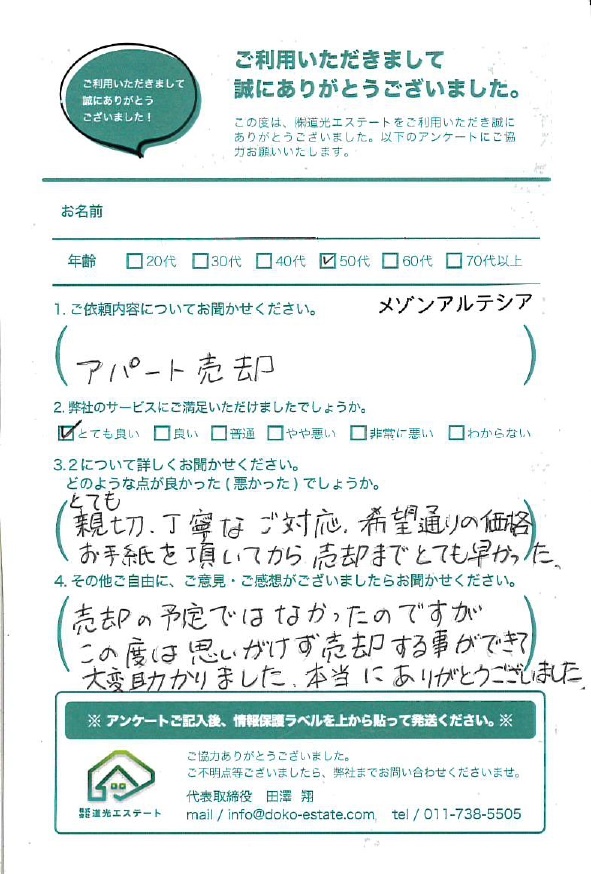 ご利用いただきまして
誠にありがとう
ございました！
ご利用いただきまして
誠にありがとうございました。
この度は、㈱道光エステートをご利用いただき誠に
ありがとうございました。以下のアンケートにご協
力お願いいたします。
お名前
年齢 □20代 □30代 □40代 ☑50代 □60代 □70代以上
1. ご依頼内容についてお聞かせください。 メゾンアルテシア
アパート売却
2. 弊社のサービスにご満足いただけましたでしょうか。
☑とても良い □良い □普通 □やや悪い □非常に悪い □わからない
3.2について詳しくお聞かせください。
どのような点が良かった(悪かった)でしょうか。
とても
親切、丁寧なご対応、希望通りの価格
お手紙を頂いてから売却までとても早かった。
4. その他ご自由に、ご意見・ご感想がございましたらお聞かせください。
売却の予定ではなかったのですが
この度は思いがけず売却する事ができて
大変助かりました、本当にありがとうございました。
※ アンケートご記入後、情報保護ラベルを上から貼って発送ください。※
ご協力ありがとうございました。
ご不明点等ございましたら、弊社までお問い合わせくださいませ。
代表取締役 田澤 翔
mail / info@doko-estate.com tel / 011-738-5505
株式会社道光エステート